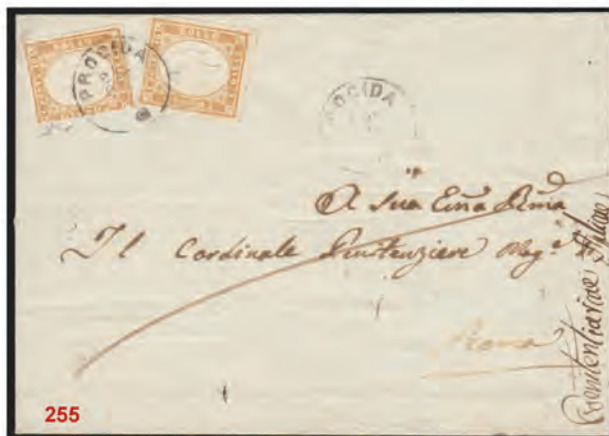 PROCIDA
BOLLO
OCIDA
A Sua Emã Rmã
Il Cordinale Penitenziere Mag.e
Roma
Penitentiariae
255